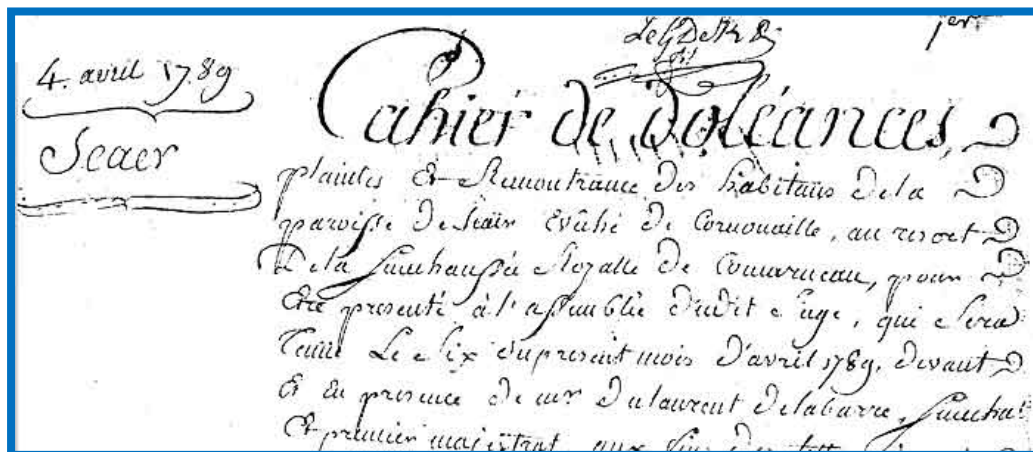 4. avril 1789
Scaer
1er
Cahier de doléances,
plaintes Et Remontrance des habitans de la
paroisse de Scaër Evêché de Cornouaille, au resort
De la Sennechaussée Royalle de Concarneau, pour
Etre presenté à l'assemblée dudit siege, qui sera
Tenüe Le six du present mois d'avril 1789. devant
Et En presence de mr Dulaurent Delabarre, Sennechal
Et premier majestrat, aux fins des lettres